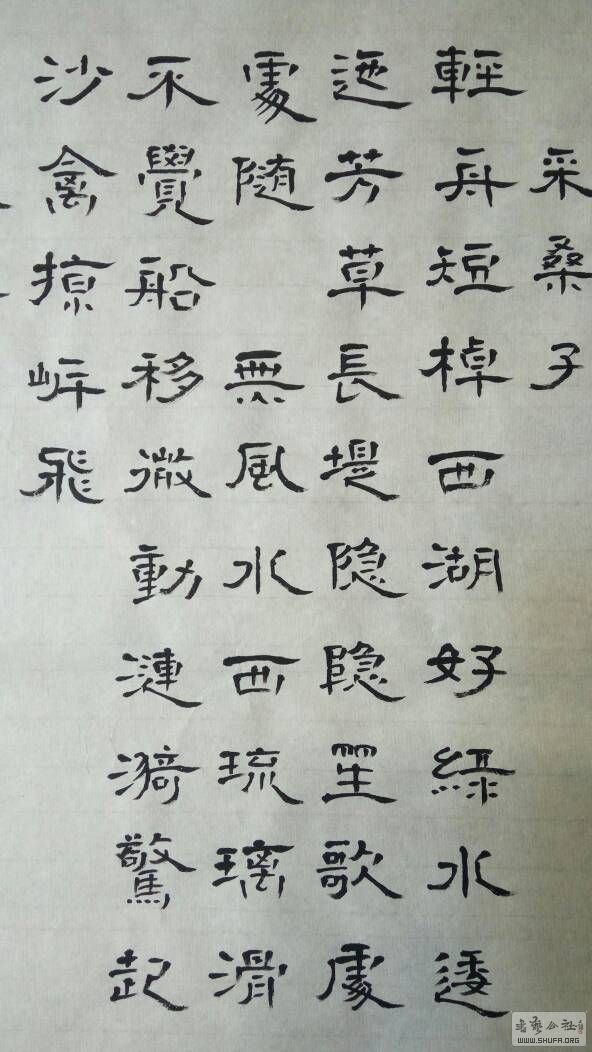 采桑子
輕舟短棹西湖好綠水逶
迤芳草長堤隐隐笙歌處
處随 無風水西琉璃滑
不覺船移微動漣漪驚起
沙禽掠岸飛
书艺公社
WWW.SHUFA.ORG